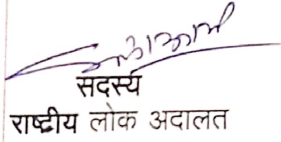 सदस्य
राष्ट्रीय लोक अदालत